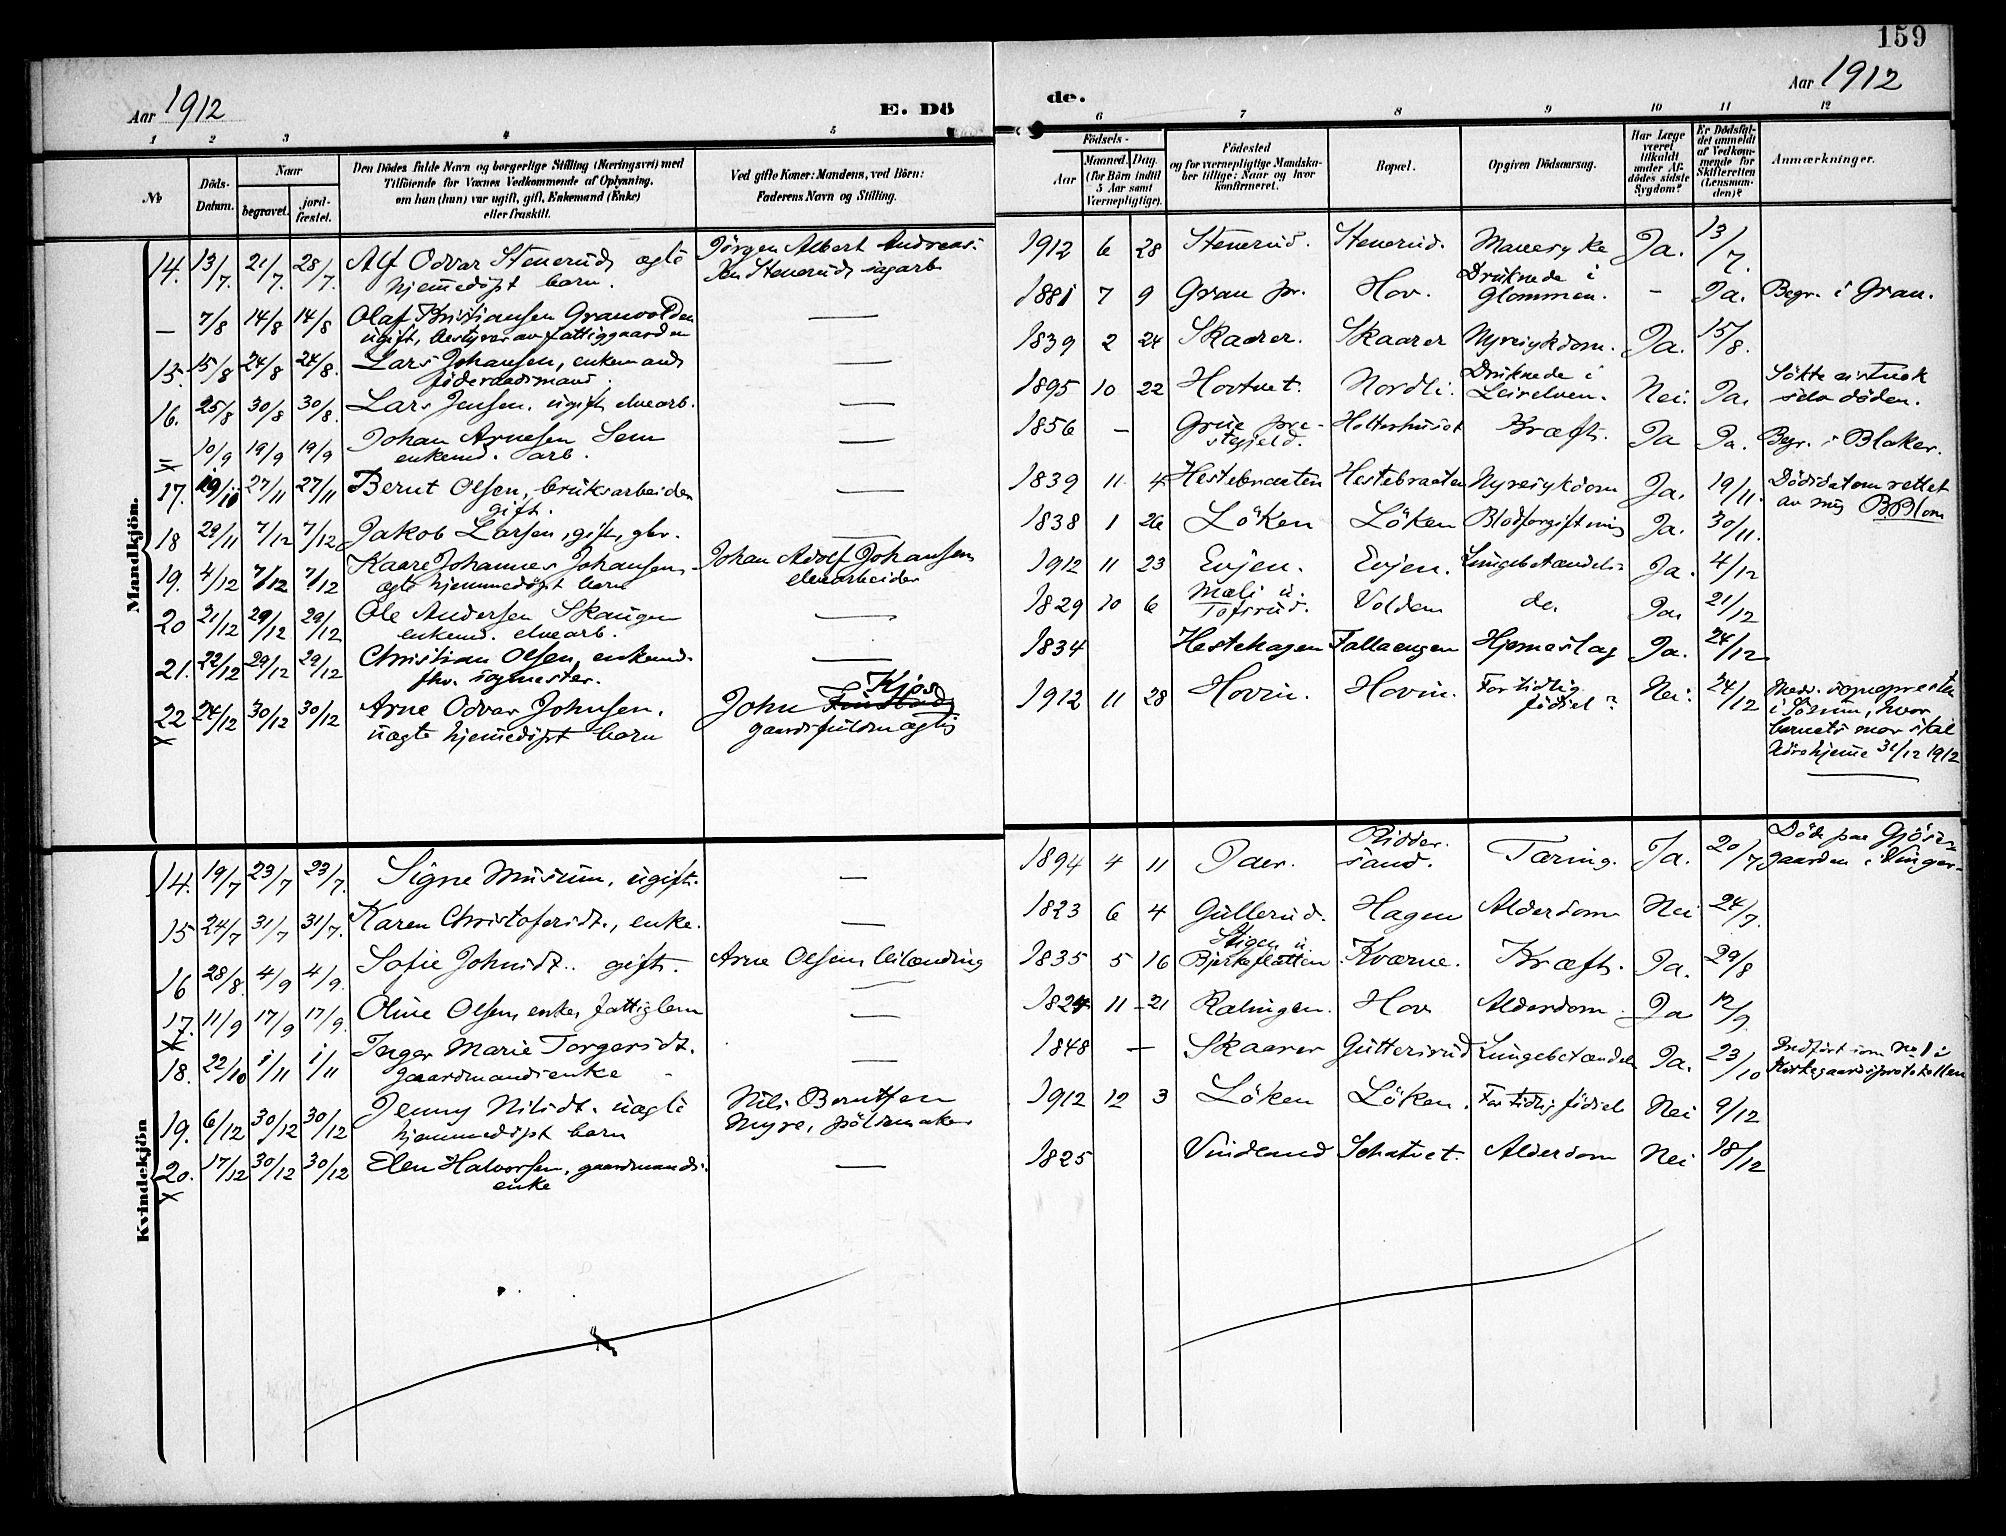 159
Aar 1912
E. Dö
de.
Aar 1912
1 2 3 4 5 6 7 8 9 10 11 12
No
Döds-
Datum.
Naar
begravet.
jord-
fæstet.
Den Dödes fulde Navn og borgerlige Stilling (Næringsvei) med
Tilföiende for Voxnes Vedkommende af Oplysning,
om han (hun) var ugift, gift, Enkemand (Enke)
eller fraskilt.
Ved gifte Koner: Mandens, ved Börn:
Faderens Navn og Stilling.
Födsels-
Aar
Maaned. Dag.
(for Börn indtil
5 Aar samt
Værnepligtige).
Födested
og for værnepligtige Mandska-
ber tillige: Naar og hvor
konfirmeret.
Bopæl.
Opgiven Dödsaarsag.
Har Læge
været
tilkaldt
under Af-
dödes sidste
Sygdom?
Er Dödsfal-
det anmeldt
af Vedkom-
mende for
Skifteretten
(Lensman-
den)?
Anmærkninger.
Mandkjön.
14. 13/7 21/7 28/7. Alf Odvar Stenerud, ægte
hjemmedöpt barn.
Jörgen Albert Andreas-
sen Stenerud, sagarb.
1912 6 28 Stenerud. Stenerud. Mavesyke Ja. 13/7.
— 7/8 14/8 14/8 Olaf Kristiansen Granvolden
ugift, bestyrer av fattiggaarden
—
1881 7 9 Gran pr. Hov. Druknede i
Glommen. - Ja. Begr. i Gran.
15. 15/8 24/8 24/8. Lars Johansen, enkemand
föderaadsmand.
—
1839 2 24 Skaarer. Skaarer Nyresykdom. Ja. 15/8.
16. 25/8 30/8 30/8. Lars Jensen, ugift, elvearb.
—
1895 10 22 Hovtvet. Nordli. Druknede i
Leirelven. Nei. Ja. Sökte
selv döden.
— 10/9 19/9 19/9 Johan Arnesen Sem
enkemd. arb.
—
1856 — Grue pre-
stegjeld. Kræft. Ja Ja. Begr. i Blaker.
17. 19/10 27/11 27/11 Bernt Olsen, bruksarbeider
gift.
—
1839 11 4 Hestebraaten Hestebraaten Nyresykdom Ja. 19/11. Dödsdatum rettet
av mig B. Blom
18 28/11 7/12 7/12 Jakob Larsen, gift, gbr.
—
1838 1 26 Löken Löken Blodforgiftning Ja. 30/11.
19. 4/12 7/12 7/12 Kaare Johannes Johansen,
ægte hjemmedöpt barn
Johan Adolf Johansen
elvearbeider
1912 11 23 Evjen. Evjen. Lungebetændels- Ja. 4/12
20 21/12 29/12 29/12 Ole Andersen Skaugen
enkemd. elvearb.
—
1829 10 6 Mæli u.
Tofsrud. Volden do. Ja. 21/12
21. 22/12 29/12 29/12 Christian Olsen, enkemd.
fhv. sagmester.
—
1834 Hestehagen Fallaengen Hjerneslag Ja. 24/12
22 24/12 30/12 30/12 Arne Odvar Johnsen.
uægte hjemmedöpt barn
Kjos
John
gaardsfuldmægtig
1912 11 28 Hovin. Hovin. For tidlig
födsel Nei. 24/12 Med. sogneprest
i Sörum, hvor
barnets mor skal
höre hjemme 31/12 1912
Kvindekjön
14. 19/7 23/7 23/7. Signe Musum, ugift.
—
1894 4 11 Paer. Ridder-
sand. Tæring. Ja. 20/7 Död paa Gjös-
gaarden i Vinger-
15 24/7 31/7 31/7. Karen Christofersdt., enke.
—
1823 6 4 Gullerud. Hagen Alderdom Nei 24/7.
16 28/8. 4/9 4/9. Sofie Johnsdt. gift.
Arne Olsen, leilænding
1835 5 16 Stigen u.
Bjerkeflatten Kværne. Kræft. Ja. 29/8
17. 11/9 17/9 17/9. Oline Olsen, enke, fattiglem
—
1824 11 21 Ralingen. Hov Alderdom Ja 12/9
18. 22/10 1/11 1/11 Inger Marie Torgersdt.
gaardmandsenke
—
1848 — Skaarer Guttersrud Lungebetændels Ja. 23/10 Indfört som No 1 i
Kirkegaardsprotokollen
19. 6/12 30/12 30/12 Jenny Nilsdt. uægte
hjemmedöpt barn
Nils Berntsen
Myre, pölsemaker
1912 12 3 Löken Löken. For tidlig födsel Nei 9/12
20. 17/12 30/12 30/12 Elen Halvorsen, gaardmands-
enke
—
1825 Vindland Schatvet. Alderdom Nei 18/12